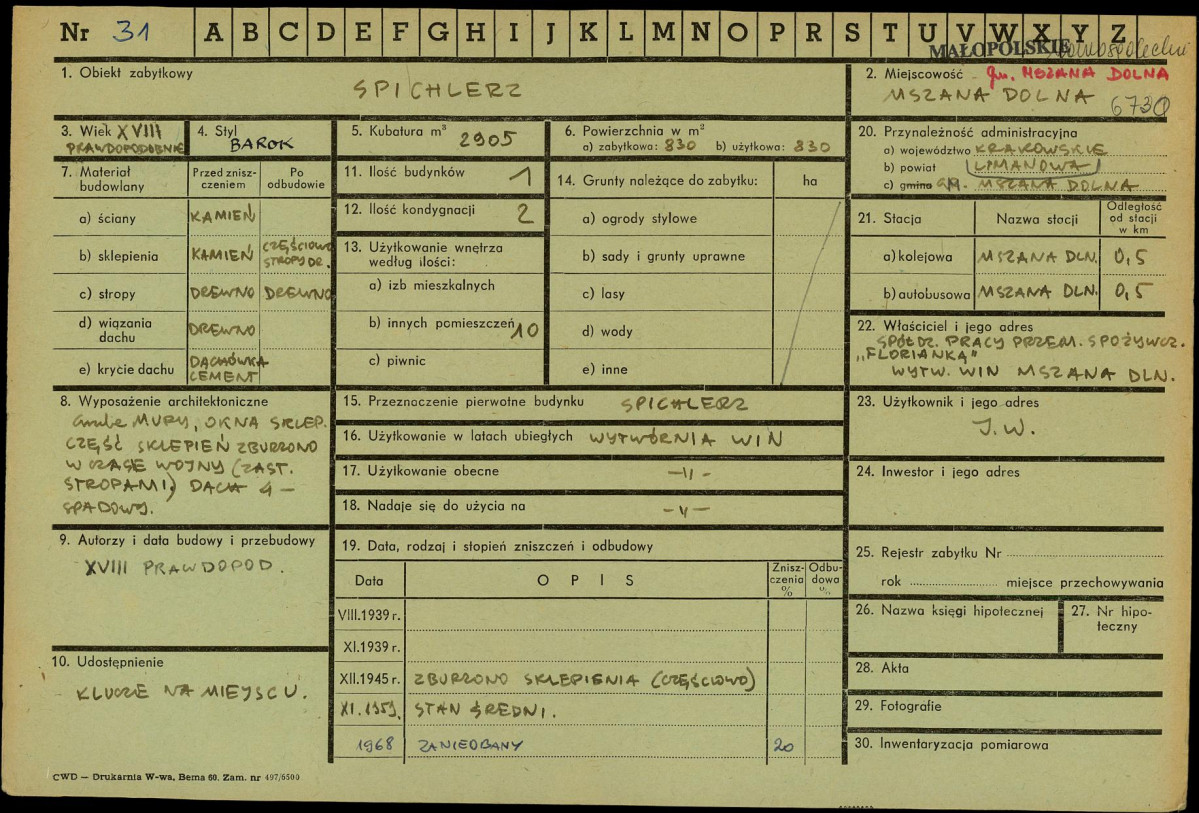 Nr 31 A B C D E F G H I J K L M N O P R S T U V W X Y Z
MAŁOPOLSKIE
1. Obiekt zabytkowy
SPICHLERZ
2. Miejscowość gm. MSZANA DOLNA
MSZANA DOLNA 6730
3. Wiek XVIII
PRAWDOPODOBNIE
4. Styl
BAROK
5. Kubatura m³
2905
6. Powierzchnia w m²
a) zabytkowa: 830 b) użytkowa: 830
20. Przynależność administracyjna
a) województwo KRAKOWSKIE
b) powiat LIMANOWA
c) gmina GM. MSZANA DOLNA
7. Materiał budowlany
Przed znisz-
czeniem
Po
odbudowie
a) ściany KAMIEŃ
b) sklepienia KAMIEŃ CZĘŚCIOWO
STROPY DR.
c) stropy DREWNO DREWNO
d) wiązania
dachu DREWNO
e) krycie dachu DACHÓWKA
CEMENT
11. Ilość budynków 1
12. Ilość kondygnacji 2
13. Użytkowanie wnętrza
według ilości:
a) izb mieszkalnych
b) innych pomieszczeń 10
c) piwnic
14. Grunty należące do zabytku: ha
a) ogrody stylowe
b) sady i grunty uprawne
c) lasy
d) wody
e) inne
21. Stacja Nazwa stacji Odległość
od stacji
w km
a) kolejowa MSZANA DLN. 0,5
b) autobusowa MSZANA DLN. 0,5
22. Właściciel i jego adres
SPÓŁDZ. PRACY PRZEM. SPOŻYWCZ.
„FLORIANKA"
WYTW. WIN MSZANA DLN.
8. Wyposażenie architektoniczne
Grube MURY, OKNA SKLEP.
CZĘŚĆ SKLEPIEŃ ZBURZONO
W CZASE WOJNY (ZAST.
STROPAMI) DACH 4 –
SPADOWY.
15. Przeznaczenie pierwotne budynku SPICHLERZ
16. Użytkowanie w latach ubiegłych WYTWÓRNIA WIN
17. Użytkowanie obecne –„–
18. Nadaje się do użycia na –„–
23. Użytkownik i jego adres
J.W.
24. Inwestor i jego adres
9. Autorzy i data budowy i przebudowy
XVIII PRAWDOPOD.
19. Data, rodzaj i stopień zniszczeń i odbudowy
Data OPIS Znisz-
czenia
% Odbu-
dowa
%
VIII.1939 r.
XI.1939 r.
XII.1945 r. ZBURZONO SKLEPIENIA (CZĘŚCIOWO)
XI.1959. STAN ŚREDNI.
1968 ZANIEDBANY 20
25. Rejestr zabytku Nr
rok miejsce przechowywania
26. Nazwa księgi hipotecznej
27. Nr hipo-
teczny
10. Udostępnienie
KLUCZE NA MIEJSCU.
28. Akta
29. Fotografie
30. Inwentaryzacja pomiarowa
CWD – Drukarnia W-wa, Bema 60. Zam. nr 497/6500